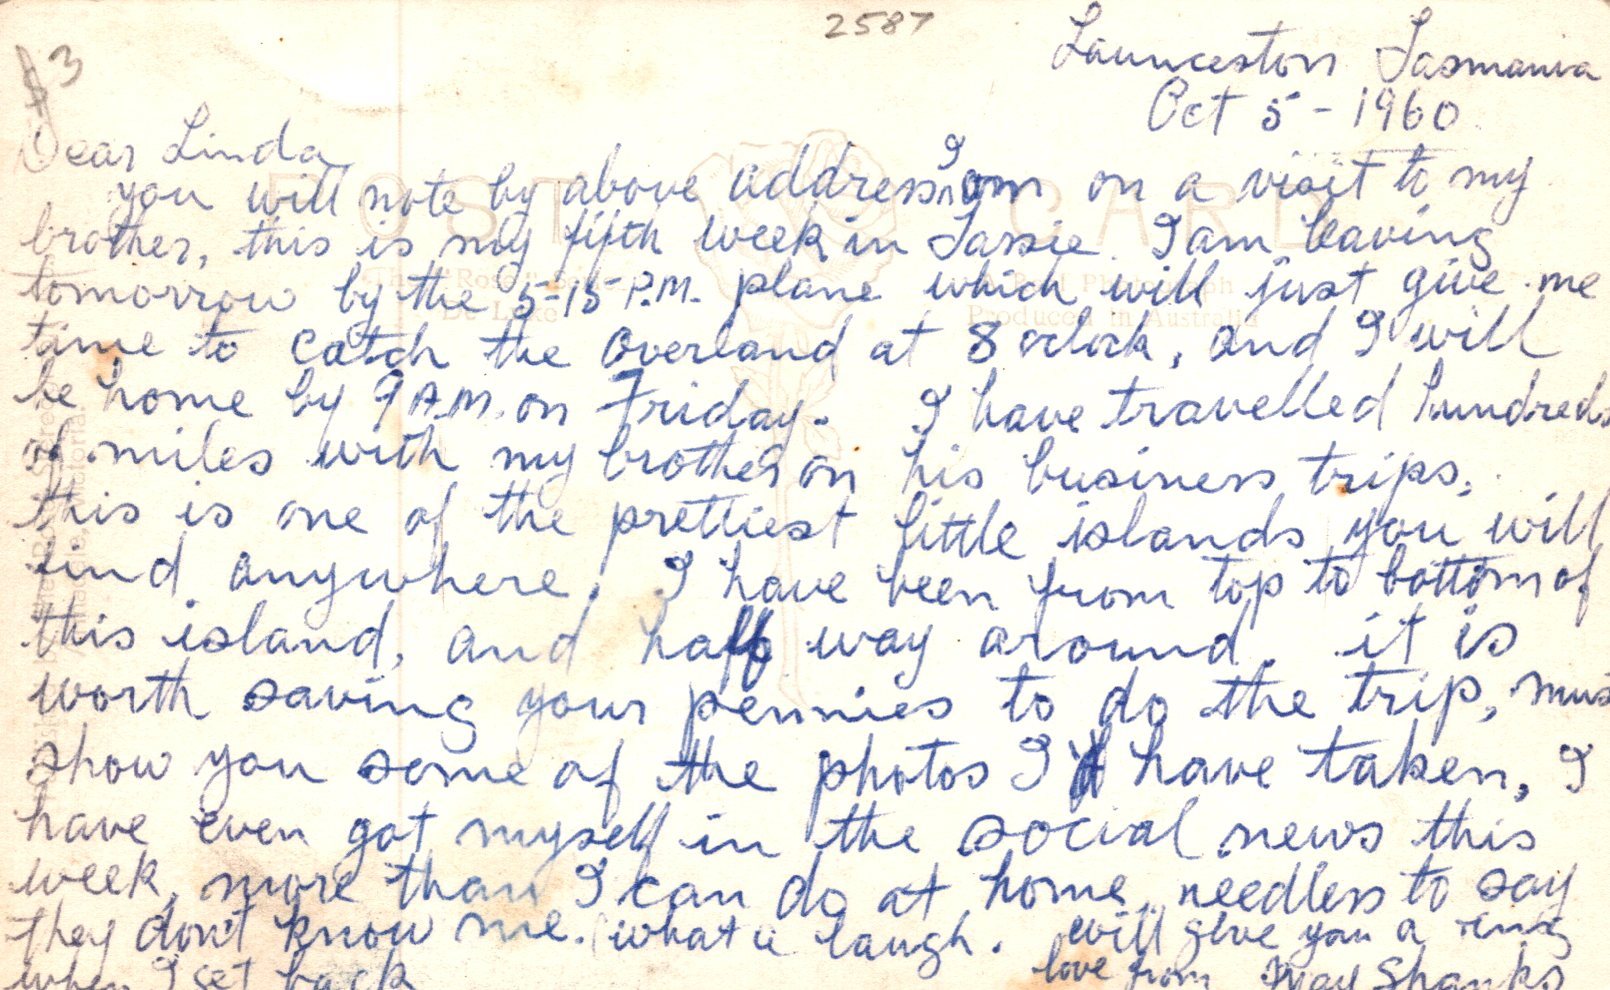 2587
$3
Launceston Tasmania
Oct 5 - 1960
Dear Linda
you will note by above address, I am on a visit to my
brother, this is my fifth week in Tassie. I am leaving
tomorrow by the 5-15 P.M. plane which will just give me
time to catch the overland at 8 oclock, and I will
be home by 9 A.M. on Friday. I have travelled hundreds
of miles with my brother on his business trips,
this is one of the prettiest little islands you will
find anywhere. I have been from top to bottom of
this island, and half way around. it is
worth saving your pennies to do the trip, must
show you some of the photos I have taken, I
have even got myself in the social news this
week, more than I can do at home, needless to say
they don't know me. what a laugh. will give you a ring
when I get back love from May Shanks
POST CARD
The "Rose" Series
De Luxe
Produced in Australia